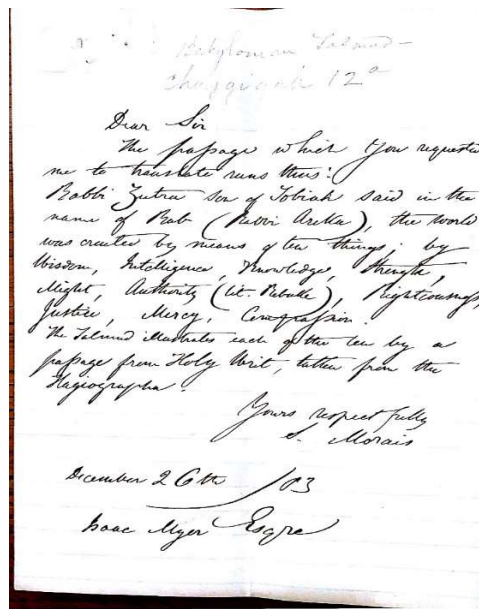 Babylonian Talmud -
Chagigah 12a
Dear Sir
The passage which you requested
me to translate runs thus:
Rabbi Zutra son of Tobiah said in the
name of Rab (Rabbi Areka), the world
was created by means of ten things: by
Wisdom, Intelligence, Knowledge, Strength,
Might, Authority (lit. Rebuke), Righteousness,
Justice, Mercy, Compassion.
The Talmud illustrates each of the ten by a
passage from Holy Writ, taken from the
Hagiographa.
Yours respectfully
S. Morais
December 26th /83
Isaac Myer Esqre